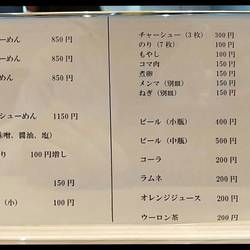 ーめん 850円
ーめん 850円
めん 850円
シューめん 1150円
味噌、醤油、塩)
り 100円増し
150円
(小) 100円
チャーシュー (3枚) 300円
のり (7枚) 100円
もやし 100円
コマ肉 150円
煮卵 150円
メンマ (別皿) 150円
ねぎ (別皿) 150円
ビール (小瓶) 400円
ビール (中瓶) 500円
コーラ 200円
ラムネ 200円
オレンジジュース 200円
ウーロン茶 200円